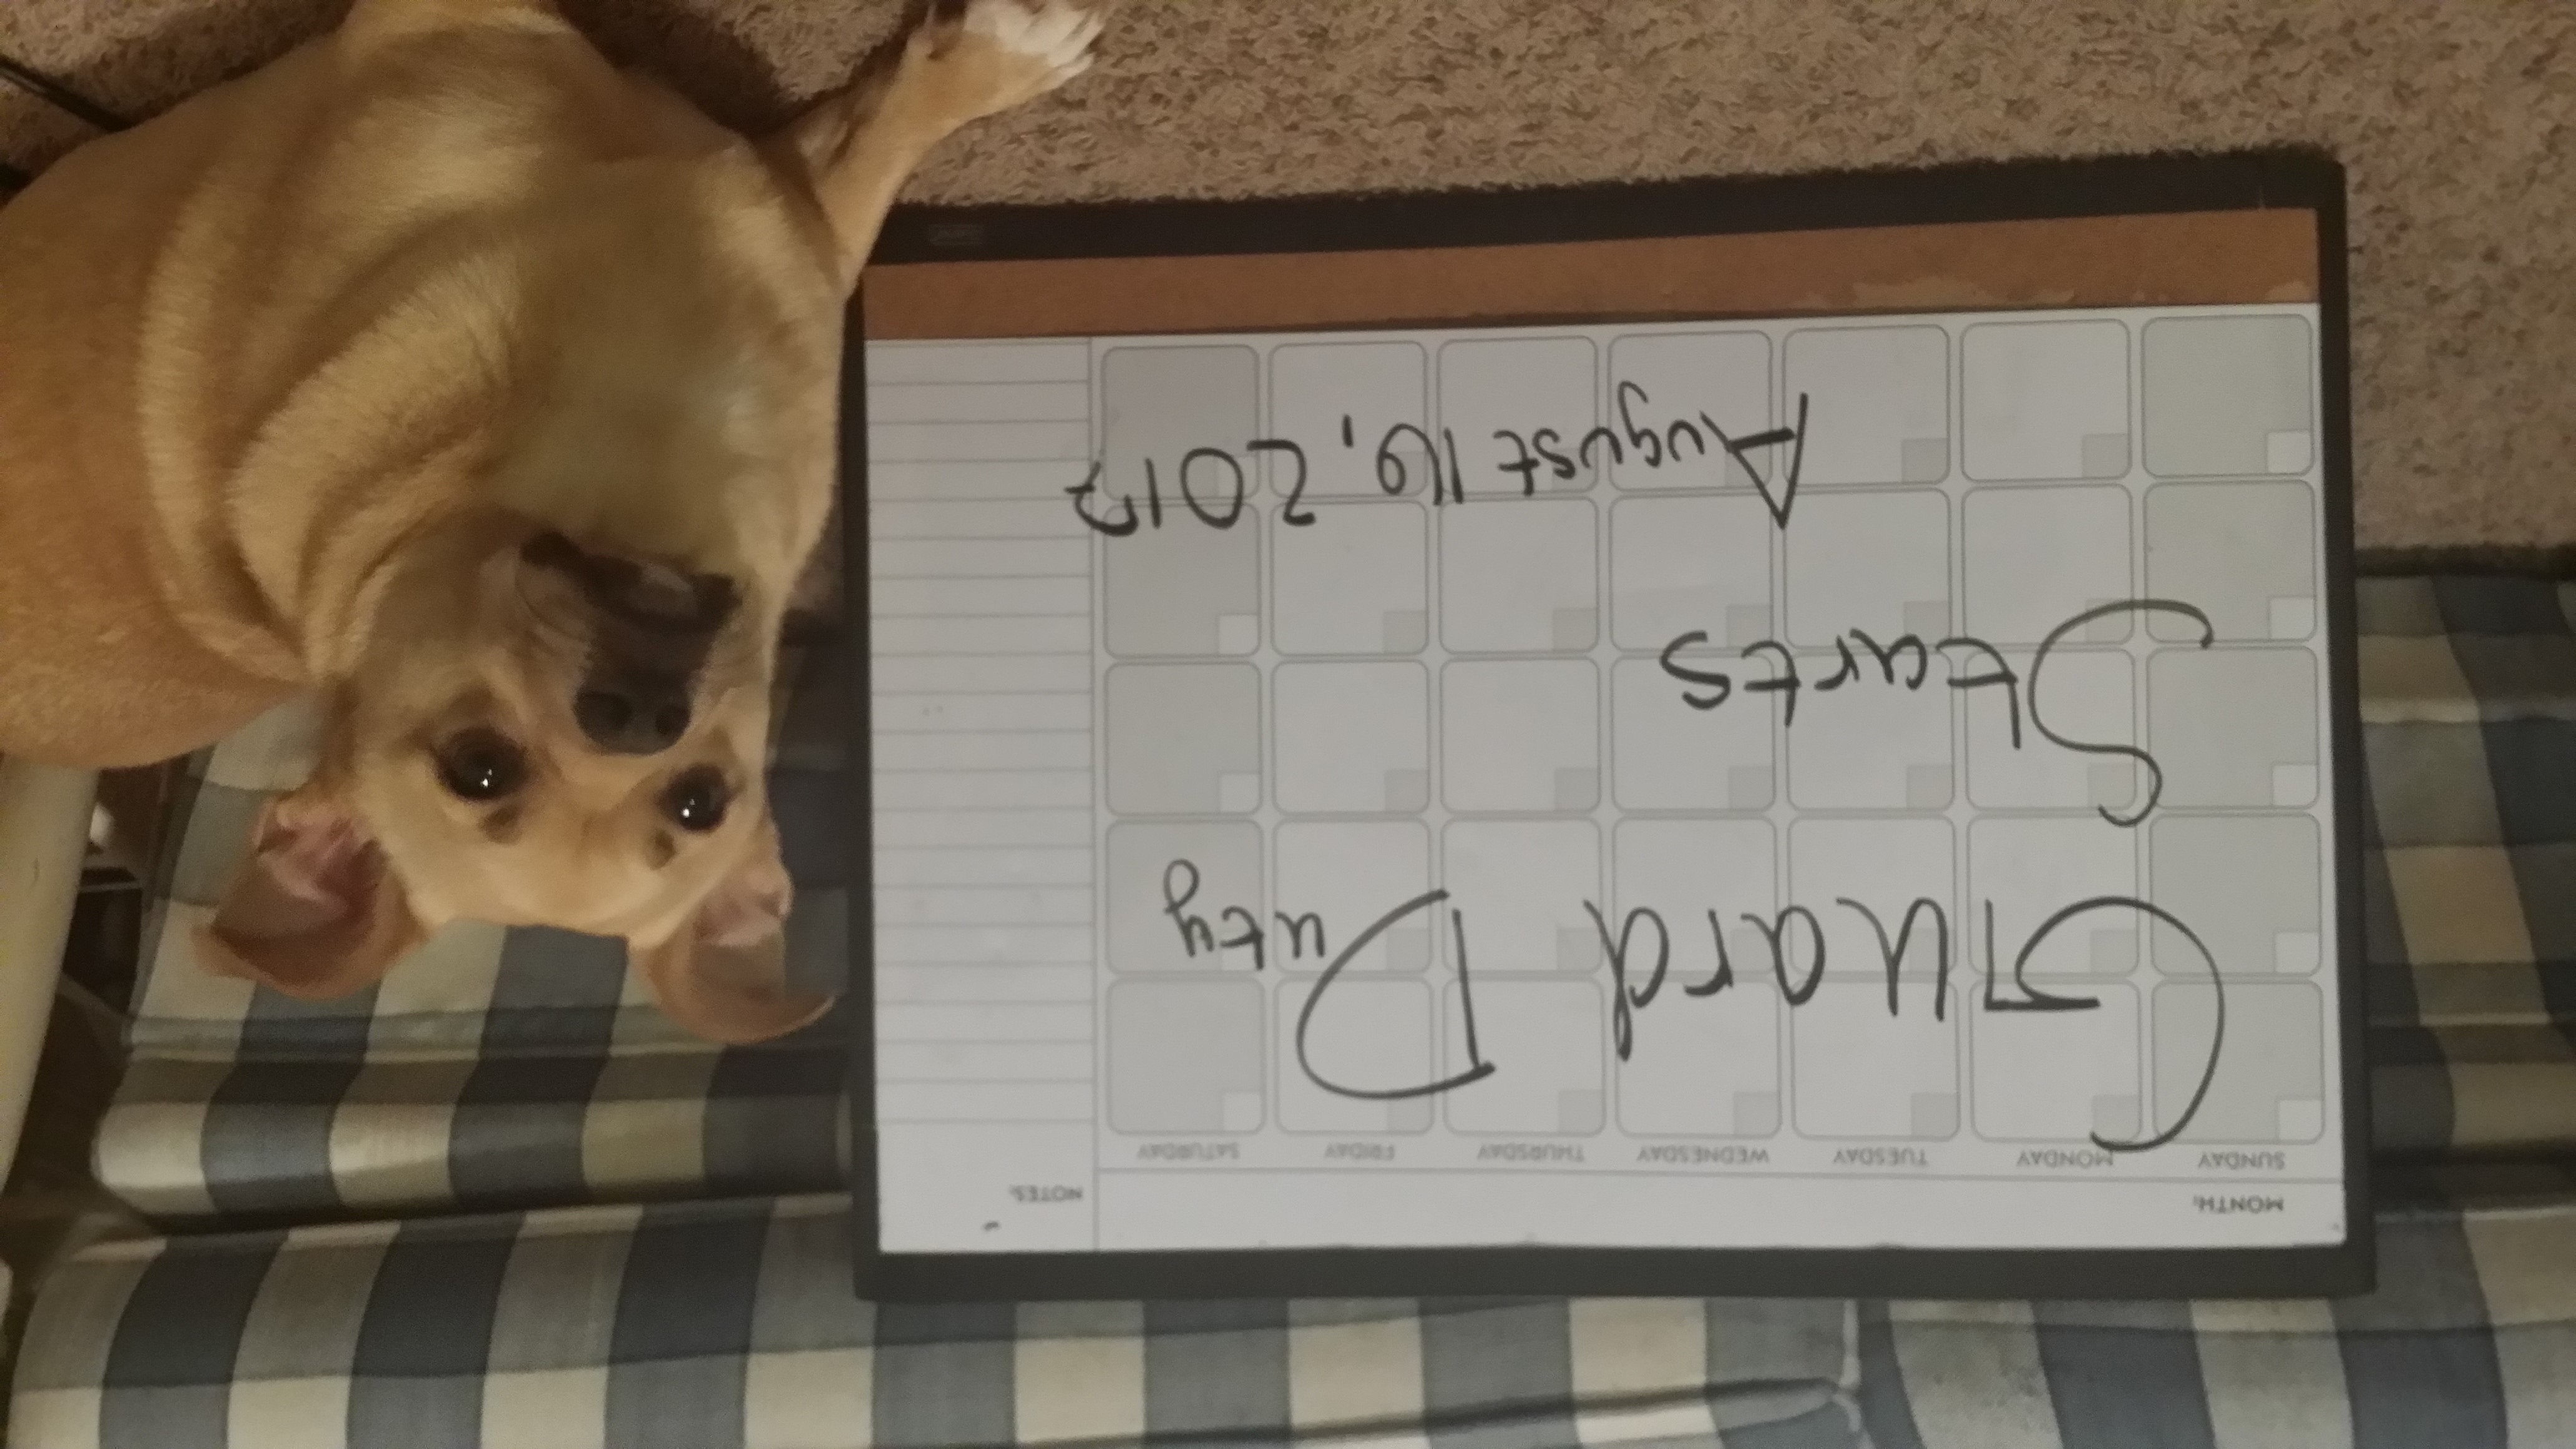 MONTH:
NOTES:
SUNDAY MONDAY TUESDAY WEDNESDAY THURSDAY FRIDAY SATURDAY
Guard Duty
Starts
August 16, 2017